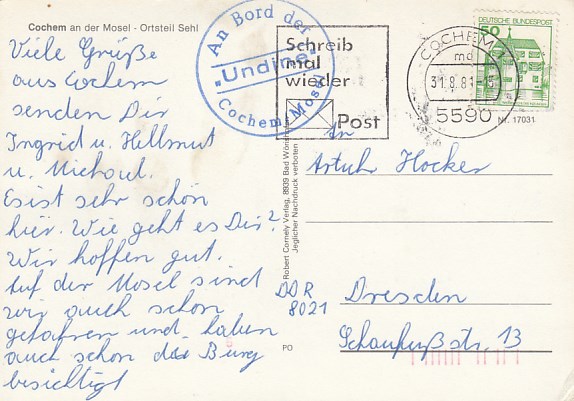 Cochem an der Mosel - Ortsteil Sehl
Viele Grüße
aus Cochem
senden Dir
Ingrid u. Hellmut
u. Michael.
Es ist sehr schön
hier. Wie geht es Dir?
Wir hoffen gut.
Auf der Mosel sind
wir auch schon
gefahren und haben
auch schon die Burg
besichtigt
An Bord der
"Undine"
Cochem/Mosel
Schreib
mal
wieder
Post
COCHEM
md
31.8.81
5590
DEUTSCHE BUNDESPOST
50
Nr. 17031
Robert Cornely Verlag, 8939 Bad Wörish
Jeglicher Nachdruck verboten
An
Artuhr Hocker
DDR
8021
Dresden
Schaufußstr. 13
PO